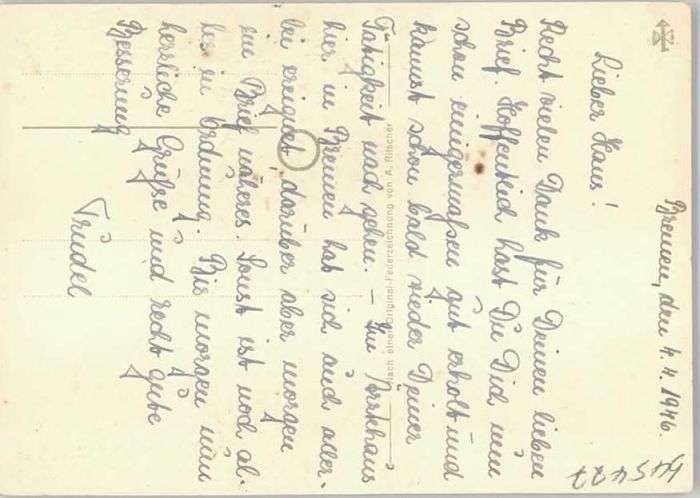 Bremen, den 4.4.1946.
Lieber Hans!
Recht vielen Dank für Deinen lieben
Brief. Hoffentlich hast Du Dich nun
schon einigermaßen gut erholt und
kannst schon bald wieder Deiner
Tätigkeit nach gehen. – Im
hier in Bremen hat sich auch aller-
lei ereignet, darüber aber morgen
im Brief näheres. Sonst ist noch al-
les in Ordnung. Bis morgen nun
herzliche Grüße und recht gute
Besserung
Trudel
Nach einer Original-Federzeichnung von A. Rilscher